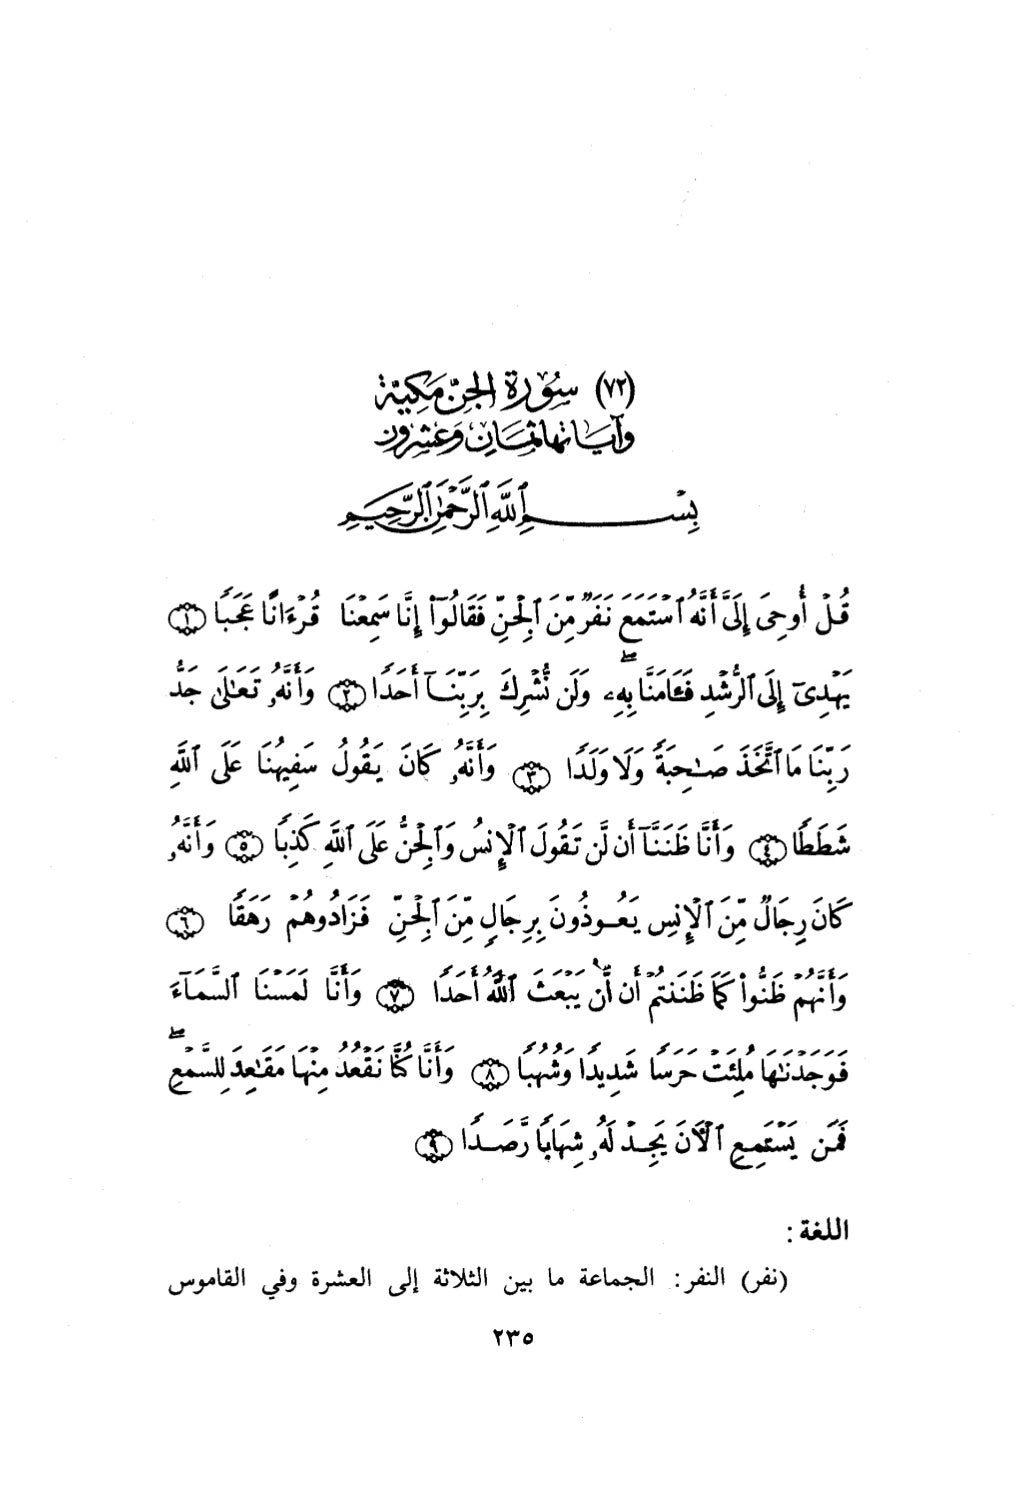 (٧٢) سُورَةُ الجِنّ مَكِيَّة
وَآيَاتهَا ثمَانٍ وَعِشرُون
بِسْمِ ٱللَّهِ ٱلرَّحْمَٰنِ ٱلرَّحِيمِ
قُلْ أُوحِىَ إِلَىَّ أَنَّهُ ٱسْتَمَعَ نَفَرٌ مِّنَ ٱلْجِنِّ فَقَالُوٓا۟ إِنَّا سَمِعْنَا قُرْءَانًا عَجَبًا ﴿١﴾
يَهْدِىٓ إِلَى ٱلرُّشْدِ فَـَٔامَنَّا بِهِۦ ۖ وَلَن نُّشْرِكَ بِرَبِّنَآ أَحَدًا ﴿٢﴾ وَأَنَّهُۥ تَعَٰلَىٰ جَدُّ
رَبِّنَا مَا ٱتَّخَذَ صَٰحِبَةً وَلَا وَلَدًا ﴿٣﴾ وَأَنَّهُۥ كَانَ يَقُولُ سَفِيهُنَا عَلَى ٱللَّهِ
شَطَطًا ﴿٤﴾ وَأَنَّا ظَنَنَّآ أَن لَّن تَقُولَ ٱلْإِنسُ وَٱلْجِنُّ عَلَى ٱللَّهِ كَذِبًا ﴿٥﴾ وَأَنَّهُۥ
كَانَ رِجَالٌ مِّنَ ٱلْإِنسِ يَعُوذُونَ بِرِجَالٍ مِّنَ ٱلْجِنِّ فَزَادُوهُمْ رَهَقًا ﴿٦﴾
وَأَنَّهُمْ ظَنُّوا۟ كَمَا ظَنَنتُمْ أَن لَّن يَبْعَثَ ٱللَّهُ أَحَدًا ﴿٧﴾ وَأَنَّا لَمَسْنَا ٱلسَّمَآءَ
فَوَجَدْنَٰهَا مُلِئَتْ حَرَسًا شَدِيدًا وَشُهُبًا ﴿٨﴾ وَأَنَّا كُنَّا نَقْعُدُ مِنْهَا مَقَٰعِدَ لِلسَّمْعِ ۖ
فَمَن يَسْتَمِعِ ٱلْـَٔانَ يَجِدْ لَهُۥ شِهَابًا رَّصَدًا ﴿٩﴾
اللغة :
(نفر) النفر: الجماعة ما بين الثلاثة إلى العشرة وفي القاموس
٢٣٥